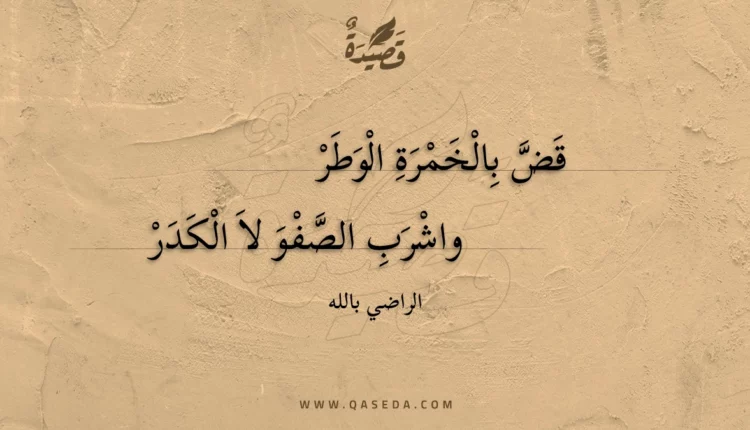 قَصِيدَةٌ
قَضَّ بِالْخَمْرَةِ الْوَطَرْ
واشْرَبِ الصَّفْوَ لاَ الْكَدَرْ
الراضي بالله
WWW.QASEDA.COM